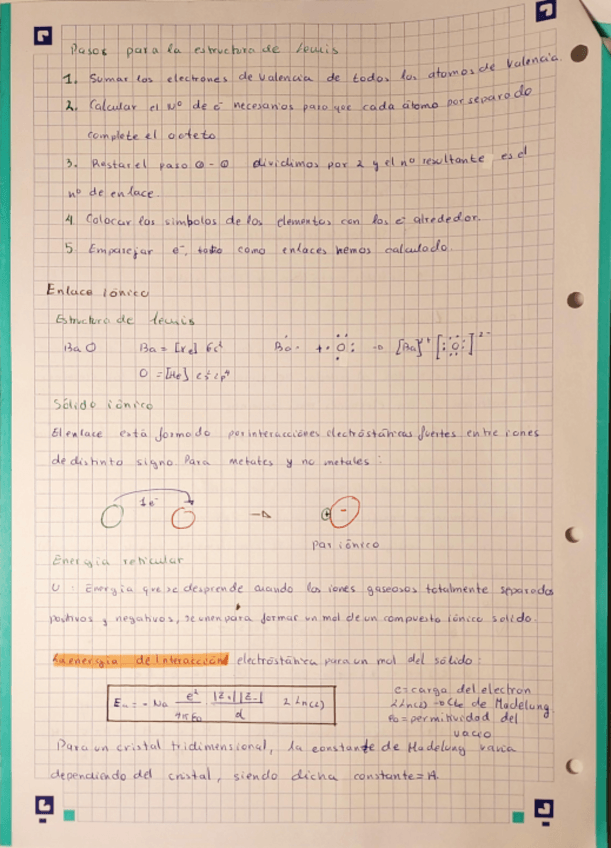 Pasos para la estructura de Lewis
1. Sumar los electrones de valencia de todos los atomos de valencia.
2. Calcular el Nº de e⁻ necesarios para que cada átomo por separado
complete el octeto
3. Restar el paso ② - ① dividimos por 2 y el nº resultante es el
nº de enlace.
4 Colocar los simbolos de los elementos con los e⁻ alrededor.
5 Emparejar e⁻, como enlaces hemos calculado.
Enlace iónico
Estructura de Lewis
BaO Ba = [Xe] 6s² Ba· + ·O: → [Ba]²⁺ [:O:]²⁻
O = [He] 2s² 2p⁴
Sólido iónico
El enlace está formado por interacciones electróstáticas fuertes entre iones
de distinto signo. Para metales y no metales:
1e⁻ → + -
Par iónico
Energía reticular
U: Energia que se desprende cuando los iones gaseosos totalmente separados
positivos y negativos, se unen para formar un mol de un compuesto iónico solido.
La energia de Interacción electróstática para un mol del sólido:
En = - Na e²/4πε₀ |Z+||Z-|/d 2 Ln(2)
e=carga del electron
2Ln(2) → cte de Madelung
ε₀ = permitividad del
vacio
Para un cristal tridimensional, la constante de Madelung varia
dependiendo del cristal, siendo dicha constante = A.